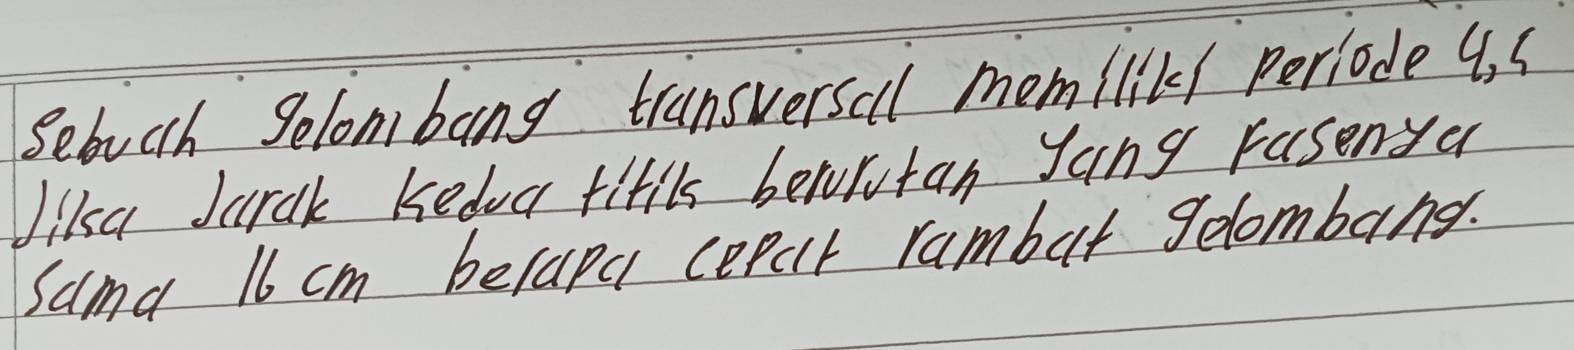 Sebuah gelombang transversal memiliki periode 4,s
Jika Jarak kedua titik berurutan yang fasenya
sama 16 cm berapa cepat rambat gelombang.